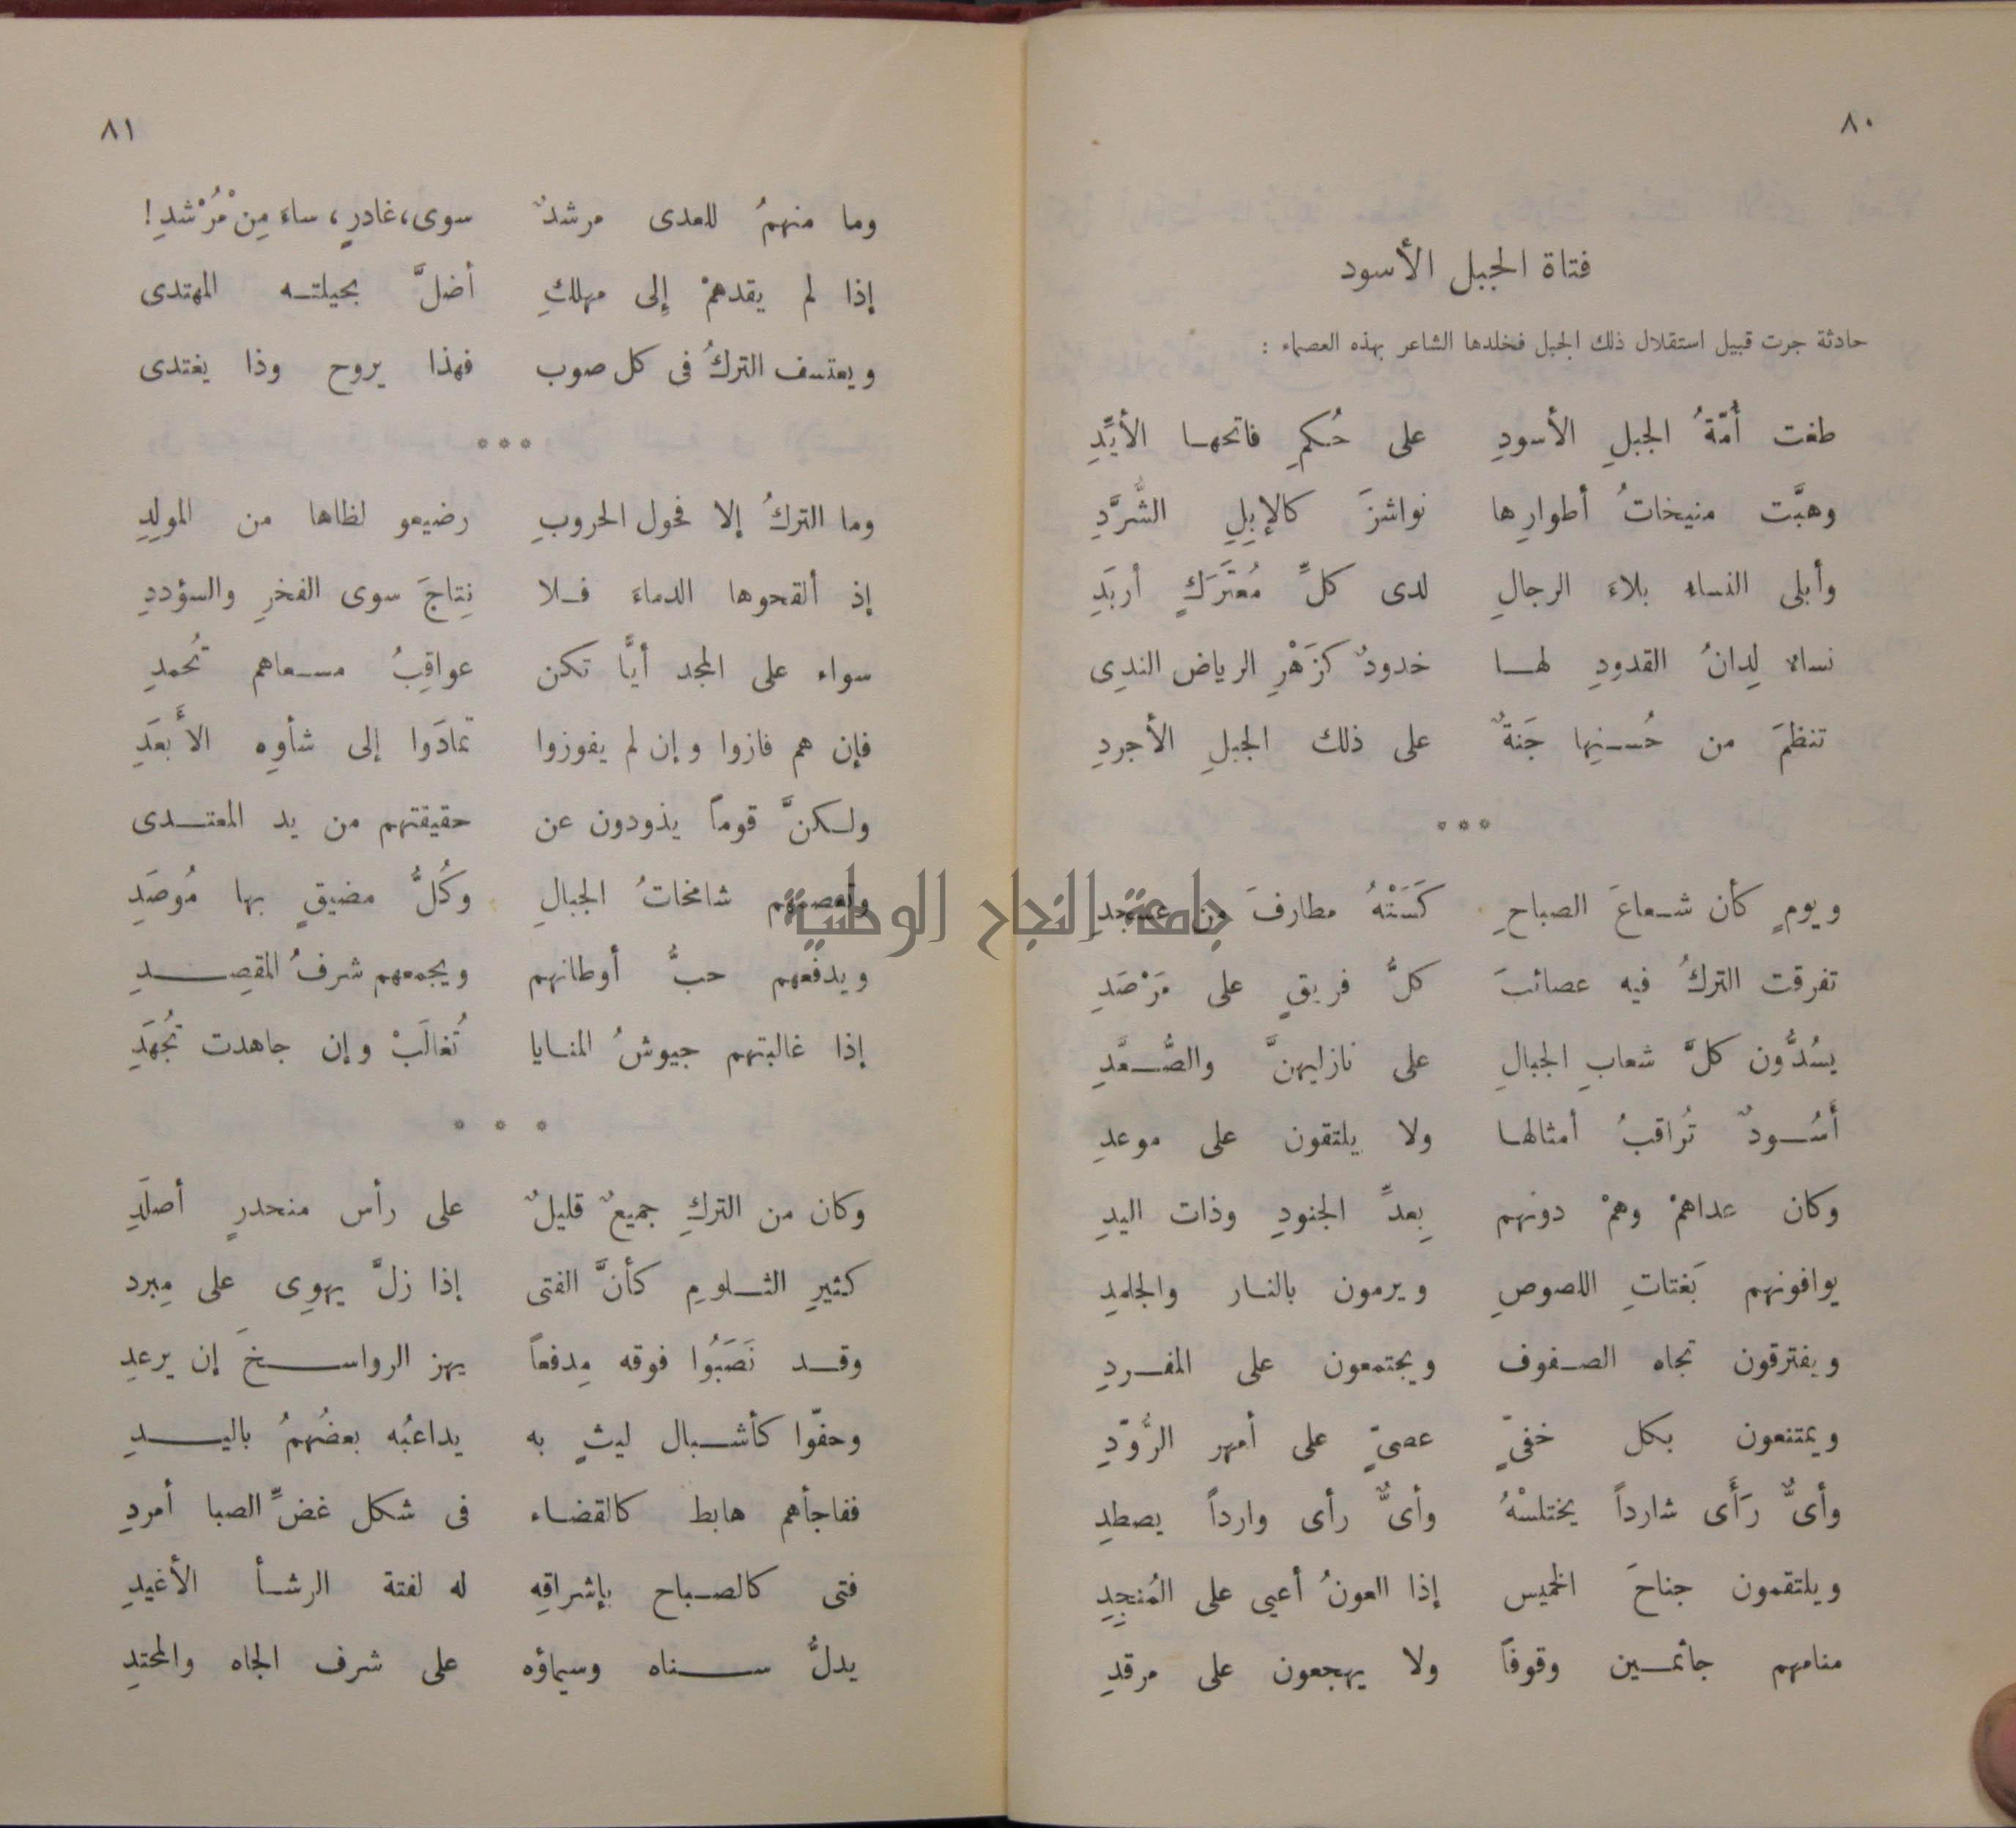 ٨٠
فتاة الجبل الأسود
حادثة جرت قبيل استقلال ذلك الجبل فخلدها الشاعر بهذه العصماء :
طغت أُمّةُ الجبلِ الأسودِ على حُكمِ فاتحها الأيِّدِ
وهبَّت منيخاتُ أطوارِها نواشزَ كالإبِلِ الشُّرَّدِ
وأبلى النساء بلاءَ الرجالِ لدى كلِّ مُعتَرَكٍ أربَدِ
نساء لِدانُ القدودِ لها خدودٌ كزَهْرِ الرياض الندِى
تنظمَ من حُسنِها جَنةٌ على ذلك الجبلِ الأجردِ
***
ويومٍ كأن شعاعَ الصباحِ كَسَتْهُ مطارفَ من عسجدِ
تفرقت التركُ فيه عصائبَ كلُّ فريقٍ على مَرْصَدِ
يسُدُّون كلَّ شعابِ الجبالِ على نازليهنَّ والصُّعَّدِ
أسُودٌ تُراقبُ أمثالها ولا يلتقون على موعدِ
وكان عداهمْ وهمْ دونهم بِعدِّ الجنودِ وذات اليدِ
يوافونهم بَغتاتِ اللصوصِ ويرمون بالنار والجلمدِ
ويفترقون تجاه الصفوف ويجتمعون على المفردِ
ويمتنعون بكل خفىٍّ عصىٍّ على أمهر الرُّوّدِ
وأىٌّ رَأَى شارداً يختلسْهُ وأىٌّ رأى وارداً يصطدِ
ويلتقمون جناحَ الخميس إذا العونُ أعيى على المُنجِدِ
منامهم جاثمين وقوفاً ولا يهجعون على مرقدِ
٨١
وما منهمُ للعدى مرشدٌ سوى، غادرٍ، ساءَ مِنْ مُرْشدِ!
إذا لم يقدهمْ إلى مهلكِ أضلَّ بحيلته المهتدى
ويعتسف التركُ فى كل صوب فهذا يروح وذا يغتدى
***
وما التركُ إلا فحول الحروبِ رضيعو لظاها من المولِدِ
إذ ألقحوها الدماءَ فلا نِتاجَ سوى الفخرِ والسؤددِ
سواء على المجد أيًّا تكن عواقِبُ مسعاهم تُحمدِ
فإن هم فازوا وإن لم يفوزوا تمادَوا إلى شأوِهِ الأبعَدِ
ولكنَّ قوماً يذودون عن حقيقتهم من يد المعتدى
وتعصمهم شامخاتُ الجبالِ وكُلُّ مضيقٍ بها مُوصَدِ
ويدفعهم حبُّ أوطانهم ويجمعهم شرفُ المقصِدِ
إذا غالبتهم جيوشُ المنايا تُغالَبْ وإن جاهدت تُجْهَدِ
* * *
وكان من التركِ جميعٌ قليلٌ على رأس منحدرٍ أصلَدِ
كثيرِ الثلومِ كأنَّ الفتى إذا زلَّ يهوِى على مِبرد
وقد نَصَبُوا فوقه مِدفعاً يهز الرواسخَ إن يرعدِ
وحفّوا كأشبال ليثٍ به يداعبُه بعضُهمُ باليدِ
ففاجأهم هابط كالقضاء فى شكل غضِّ الصبا أمردِ
فتى كالصباح بإشراقِهِ له لفتة الرشأ الأغيدِ
يدلُّ سناه وسيماؤه على شرف الجاه والمحتدِ
جامعة النجاح الوطنية